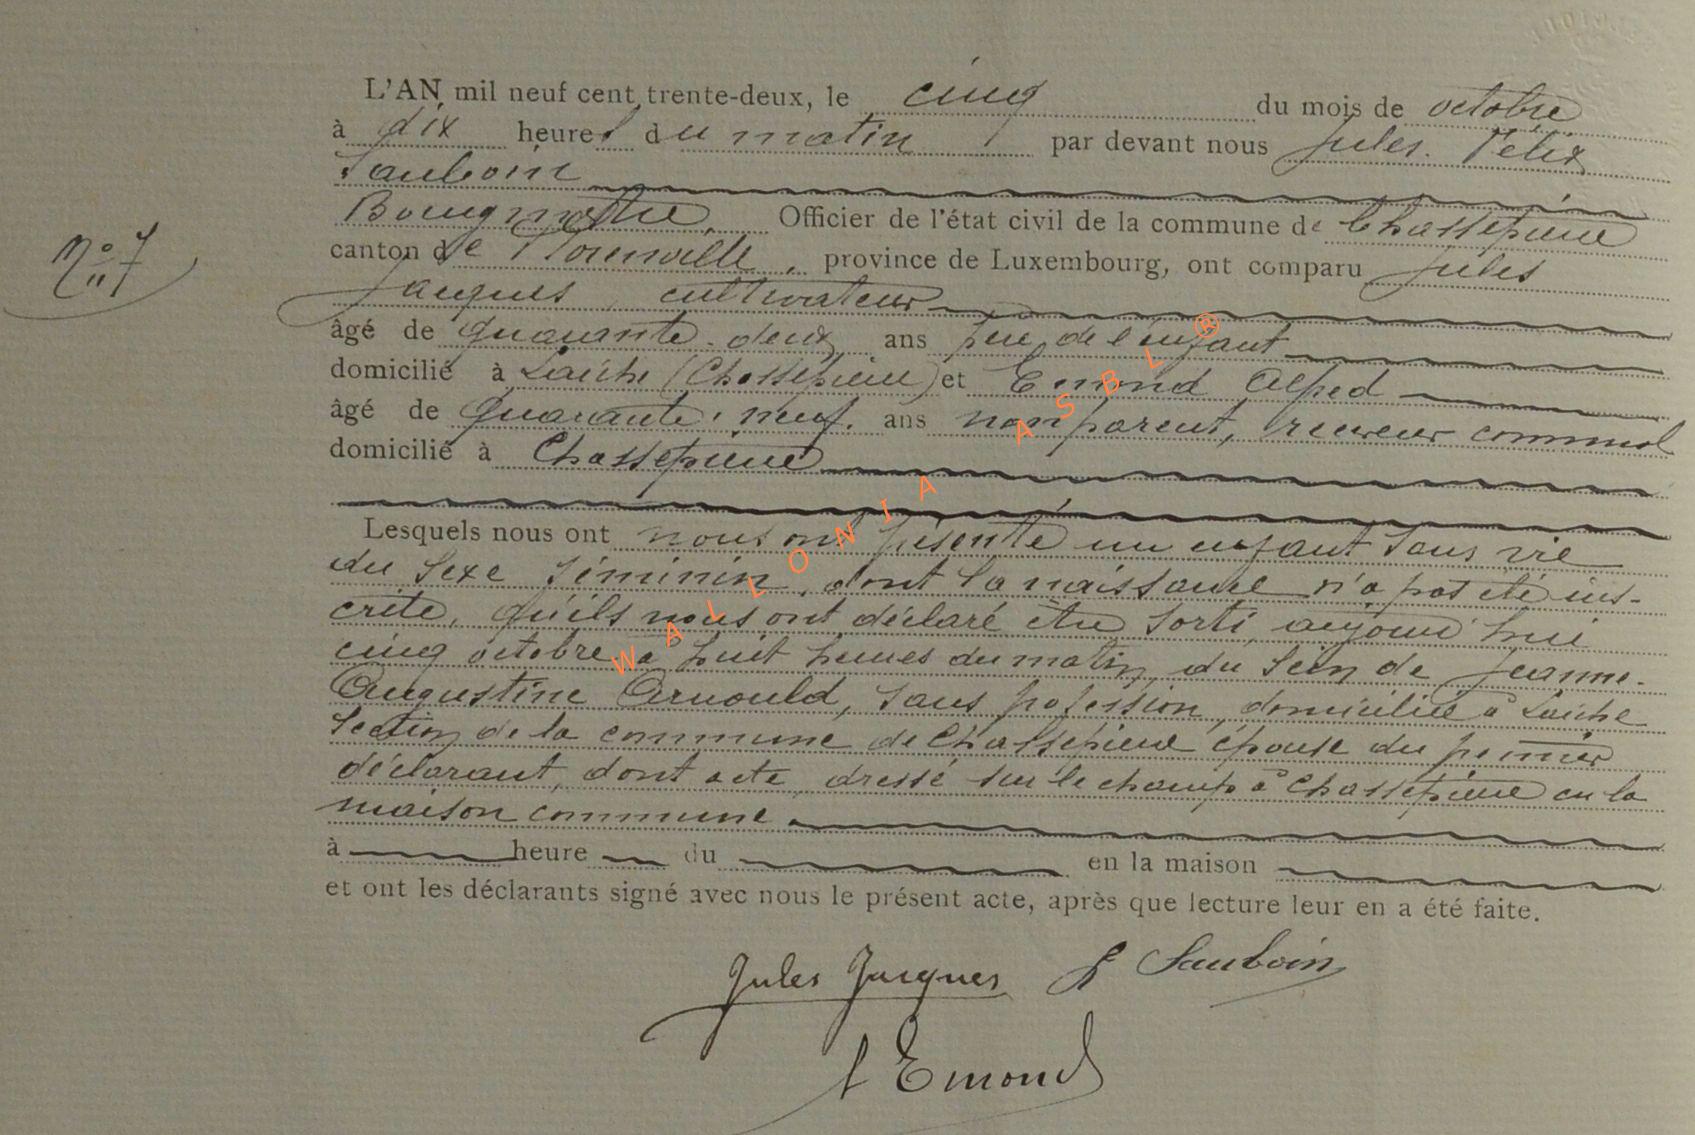 L'AN mil neuf cent trente-deux, le cinq du mois de octobre
à dix heures du matin par devant nous Jules. Félix
Sauboin
Bourgmestre, Officier de l'état civil de la commune de Chassepierre
canton de Florenville, province de Luxembourg, ont comparu Jules
Jacques, cultivateur
N° 7
âgé de quarante-deux ans père de l'enfant
domicilié à Laiche (Chassepierre) et Emond Alfred
âgé de quarante-neuf. ans non parent, receveur communal
domicilié à Chassepierre
Lesquels nous ont nous ont présenté un enfant sans vie
du sexe féminin, dont la naissance n'a pas été ins-
crite, qu'ils nous ont déclaré être sorti aujourd'hui
cinq octobre à huit heures du matin, du sein de Jeanne-
Augustine Arnould, sans profession, domiciliée à Laiche
section de la commune de Chassepierre épouse du premier
déclarant, dont acte, dressé sur le champ à Chassepierre en la
maison commune
à heure du en la maison
et ont les déclarants signé avec nous le présent acte, après que lecture leur en a été faite.
Jules Jacques Sauboin
Emond
WALLONIA ASBL ®